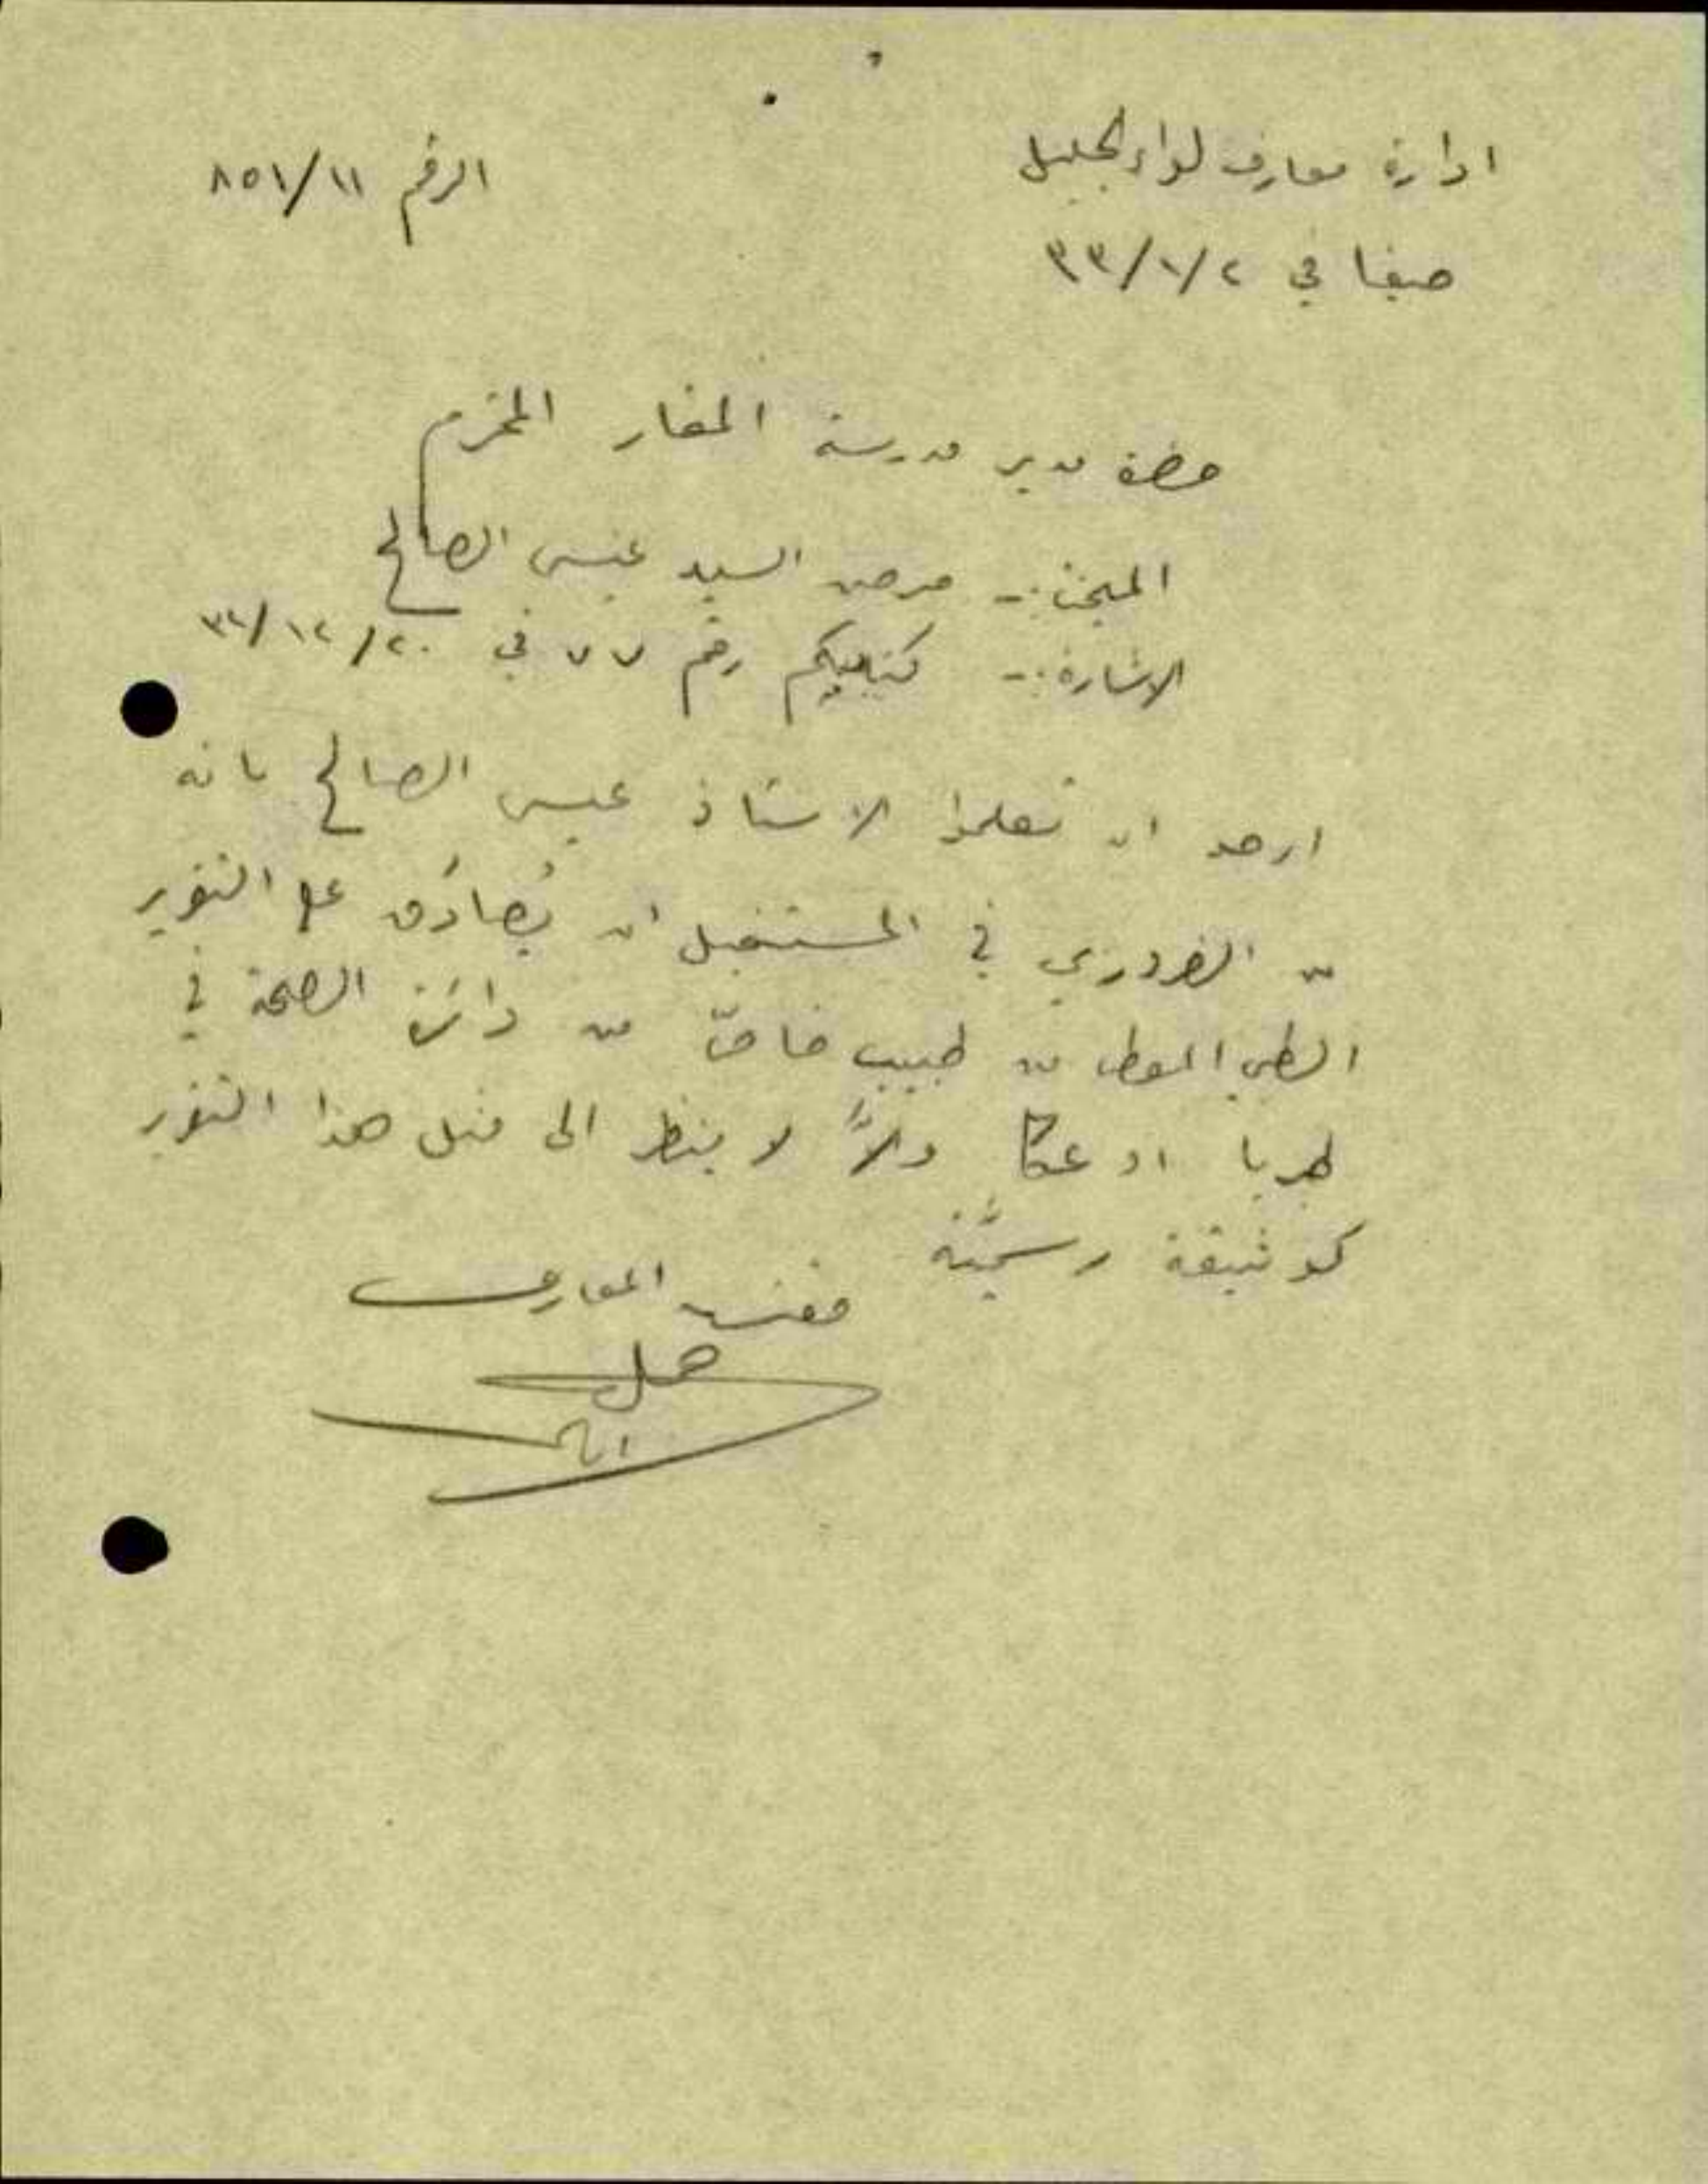 ادارة معارف لواء الجليل
الرقم ٨٥١/١١
حيفا في ٣٣/١/٢
حضرة مدير مدرسة المغار المحترم
المبحث :- مرض السيد عيسى الصالح
الاشارة :- كتابكم رقم ٧٧ في ٣٢/١٢/٢٠
ارجو ان تعلموا الاستاذ عيسى الصالح بانه
من الضروري في المستقبل ان يُصادَق على التقرير
الطبي المعطى من طبيب خاصّ من دائرة الصحة في
طبريا او عكا والاّ لا ينظر الى مثل هذا التقرير
كوثيقة رسميّة
مفتش المعارف